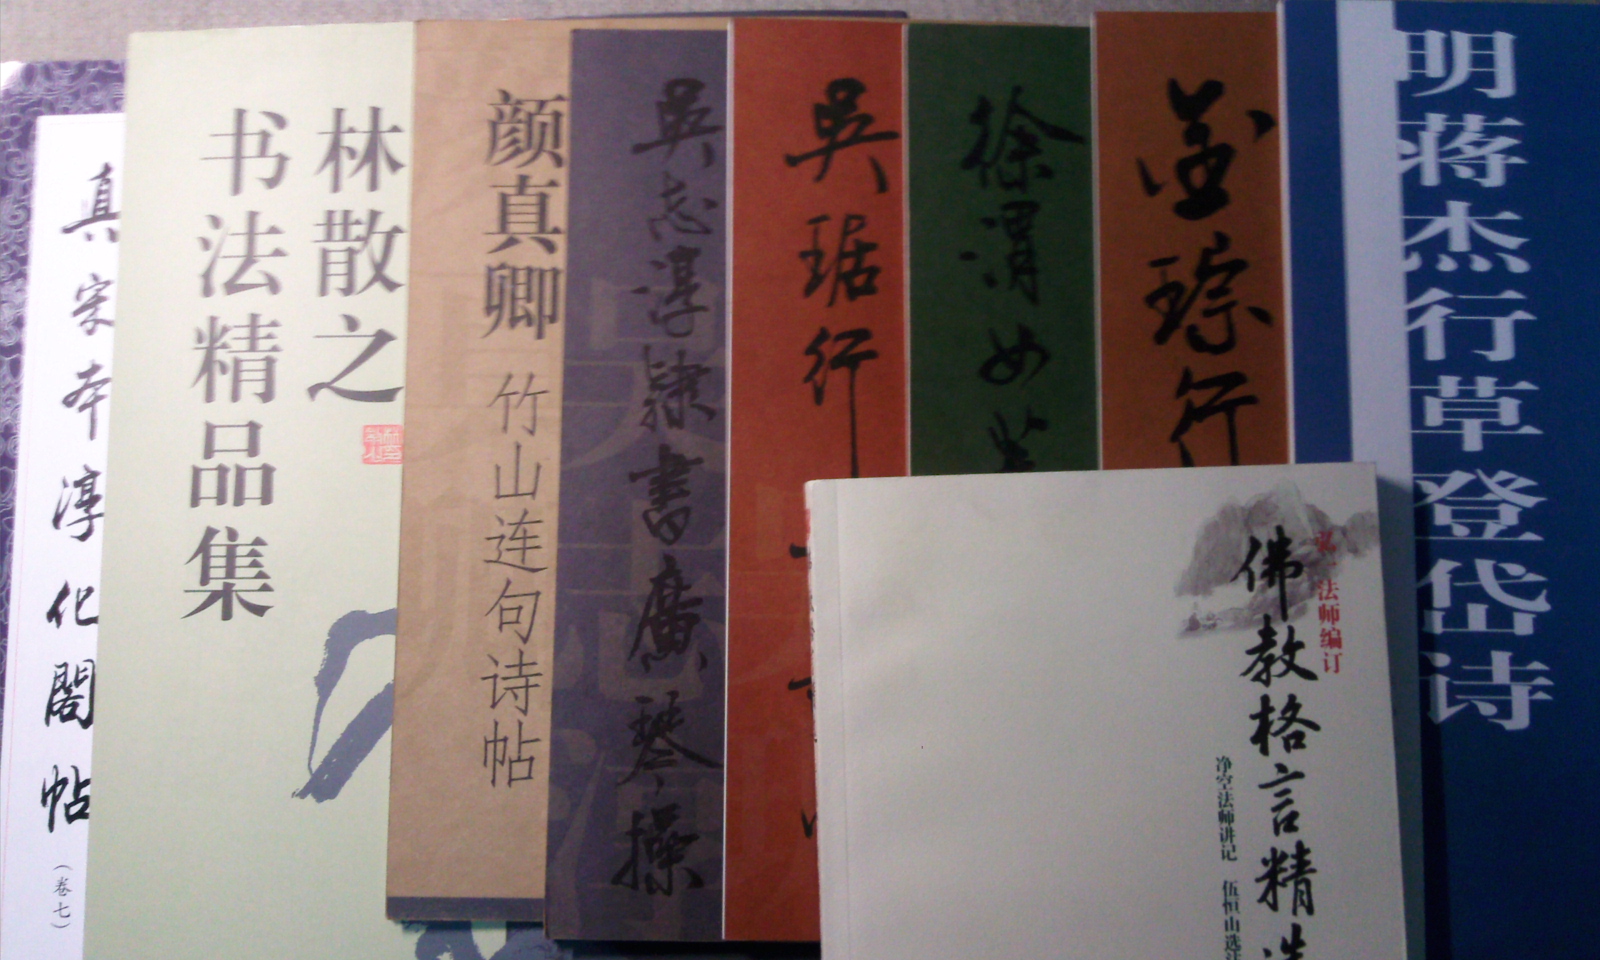 真宋本淳化閣帖
（卷七）
林散之
书法精品集
颜真卿
竹山连句诗帖
吳志淳隸書廣琴操
吳琚行
徐渭女
金琮行
明蒋杰行草登岱诗
弘一法师编订
佛教格言精选
净空法师讲记 伍恒山选注